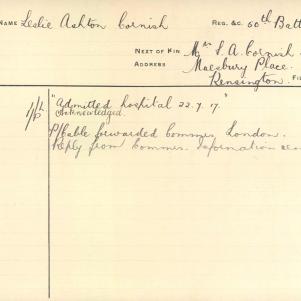 NAME Leslie Ashton Cornish REG. &C. 60th Batt
NEXT OF KIN Mrs S. A. Cornish
ADDRESS Maesbury Place.
Kensington. FI
"Admitted hospital 22.7.17."
Acknowledged.
Cable forwarded Commee, London.
Reply from Commee. Information